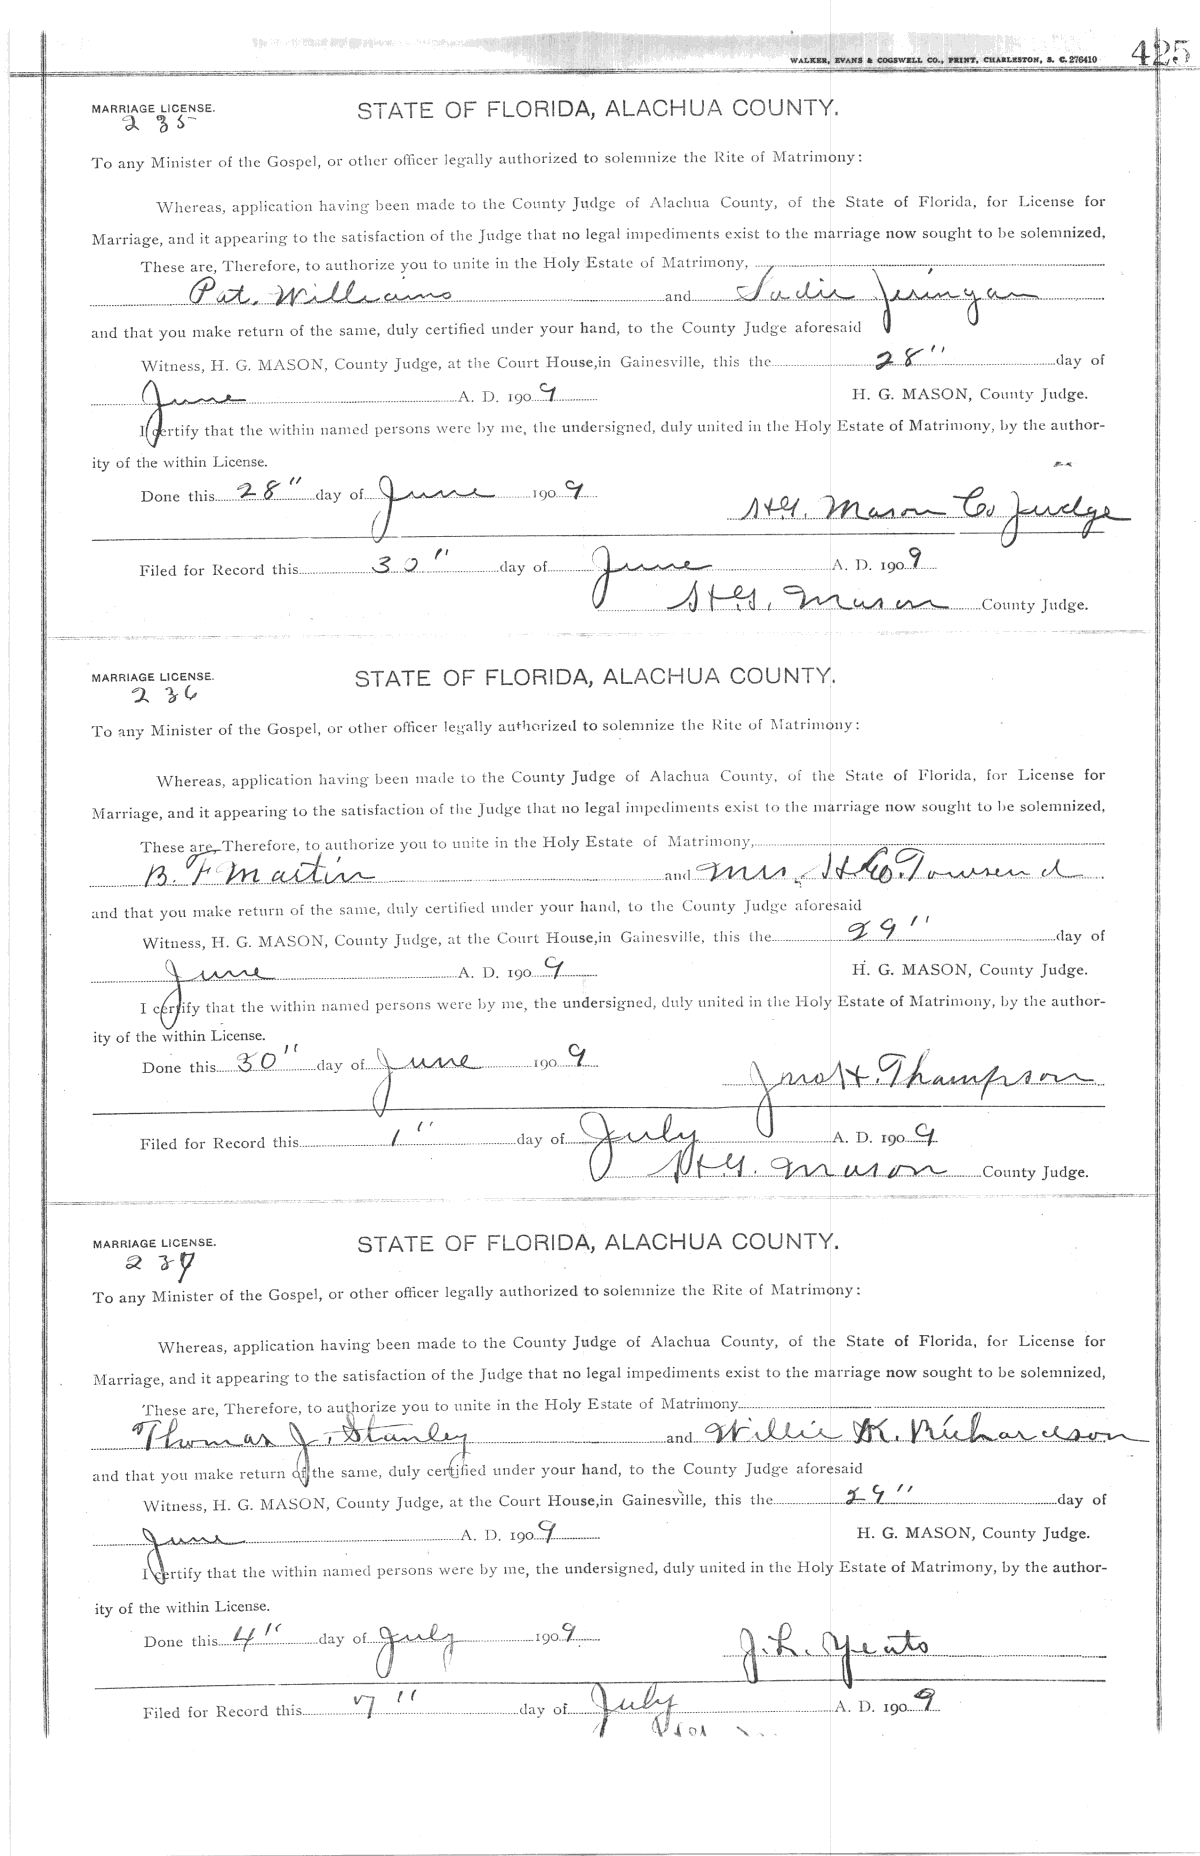 WALKER, EVANS & COGSWELL CO., PRINT, CHARLESTON, S. C. 276410 425
MARRIAGE LICENSE. STATE OF FLORIDA, ALACHUA COUNTY.
235
To any Minister of the Gospel, or other officer legally authorized to solemnize the Rite of Matrimony:
Whereas, application having been made to the County Judge of Alachua County, of the State of Florida, for License for
Marriage, and it appearing to the satisfaction of the Judge that no legal impediments exist to the marriage now sought to be solemnized,
These are, Therefore, to authorize you to unite in the Holy Estate of Matrimony,
Pat. Williams and Sadie Jeringan
and that you make return of the same, duly certified under your hand, to the County Judge aforesaid
Witness, H. G. MASON, County Judge, at the Court House, in Gainesville, this the 28" day of
June A. D. 1909 H. G. MASON, County Judge.
I certify that the within named persons were by me, the undersigned, duly united in the Holy Estate of Matrimony, by the author-
ity of the within License.
Done this 28" day of June 1909
H.G. Mason Co Judge
Filed for Record this 30" day of June A. D. 1909
H.G. Mason County Judge.
MARRIAGE LICENSE. STATE OF FLORIDA, ALACHUA COUNTY.
236
To any Minister of the Gospel, or other officer legally authorized to solemnize the Rite of Matrimony:
Whereas, application having been made to the County Judge of Alachua County, of the State of Florida, for License for
Marriage, and it appearing to the satisfaction of the Judge that no legal impediments exist to the marriage now sought to be solemnized,
These are, Therefore, to authorize you to unite in the Holy Estate of Matrimony,
B. F Martin and Mrs. H Townsend
and that you make return of the same, duly certified under your hand, to the County Judge aforesaid
Witness, H. G. MASON, County Judge, at the Court House, in Gainesville, this the 29" day of
June A. D. 1909 H. G. MASON, County Judge.
I certify that the within named persons were by me, the undersigned, duly united in the Holy Estate of Matrimony, by the author-
ity of the within License.
Done this 30" day of June 1909
Jno H. Thompson
Filed for Record this 1" day of July A. D. 1909
H.G. Mason County Judge.
MARRIAGE LICENSE. STATE OF FLORIDA, ALACHUA COUNTY.
237
To any Minister of the Gospel, or other officer legally authorized to solemnize the Rite of Matrimony:
Whereas, application having been made to the County Judge of Alachua County, of the State of Florida, for License for
Marriage, and it appearing to the satisfaction of the Judge that no legal impediments exist to the marriage now sought to be solemnized,
These are, Therefore, to authorize you to unite in the Holy Estate of Matrimony
Thomas J. Stanley and Willie K. Richardson
and that you make return of the same, duly certified under your hand, to the County Judge aforesaid
Witness, H. G. MASON, County Judge, at the Court House, in Gainesville, this the 29" day of
June A. D. 1909 H. G. MASON, County Judge.
I certify that the within named persons were by me, the undersigned, duly united in the Holy Estate of Matrimony, by the author-
ity of the within License.
Done this 4" day of July 1909
J. L. Yeats
Filed for Record this 7" day of July A. D. 1909